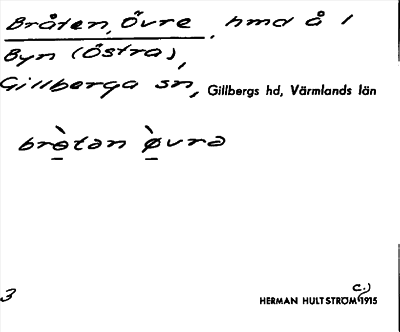 Bråten, Övre, hmd å 1
Byn (Östra),
Gillberga sn, Gillbergs hd, Värmlands län
brɵ̀tən ø̀vrə
3
c.)
HERMAN HULTSTRÖM 1915